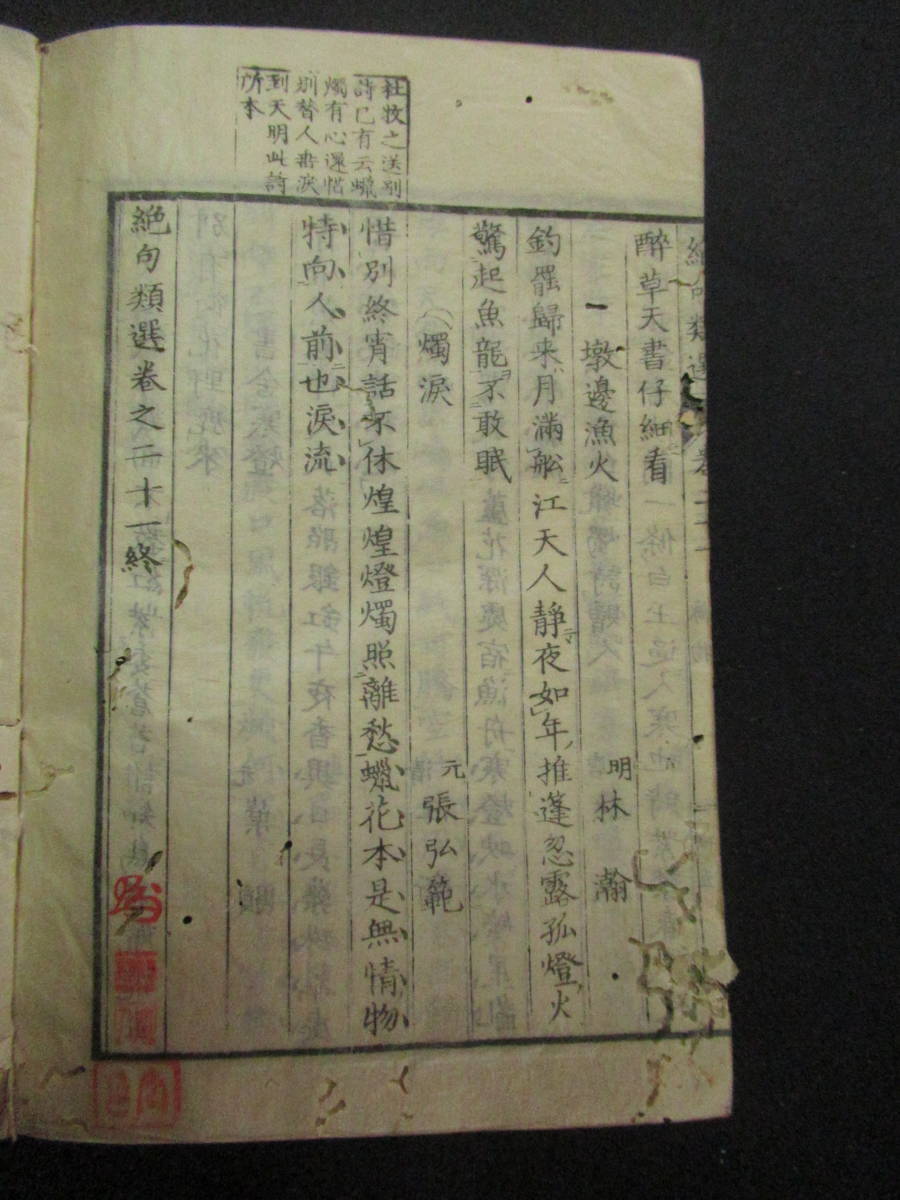 杜牧之送別
詩已有云蠟
燭有心還惜
別替人垂淚
到天明此詩
所本
醉草天書仔細看
墩邊漁火
明林瀚
釣罷歸来月滿船江天人靜夜如年推蓬忽露孤燈火
驚起魚龍不敢眠
燭淚
元張弘範
惜別終宵話不休煌煌燈燭照離愁蠟花本是無情物
特向人前也淚流
絶句類選卷之二十一終